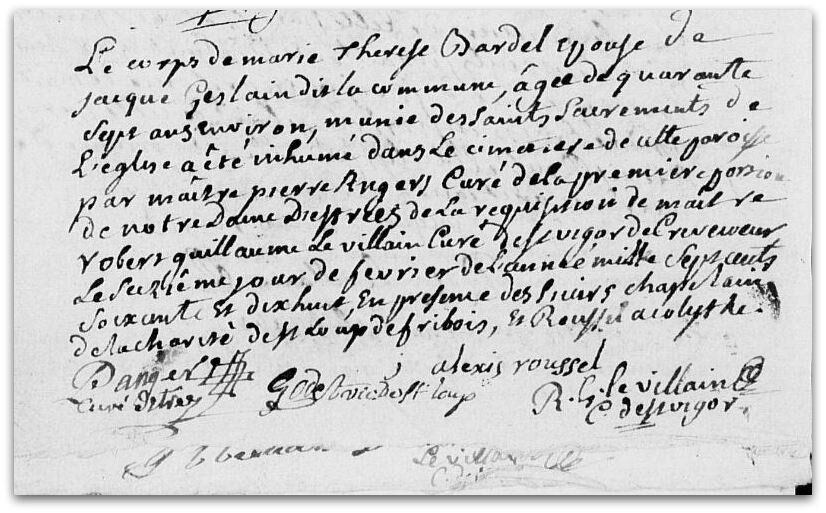 Le corps de marie therese Bardel epouse de
jacque Geslain dit la commune, âgée de quarante
sept ans environ, munie des saints sacrements de
L'eglise a êté inhumé dans Le cimetiere de cette paroisse
par maître pierre Angers Curé de la premiere portion
de notre Dame Destrées de La requisition de maître
robert guillaume Le villain Curé de st vigor de Crevecoeur
Le jour de fevrier de L'année mille sept cents
soixante et dix huit, En presence des sieurs chapelains
de la charité de st Loup de fribois, et Roussel acolythe.
P angers
Curé
alexis roussel
st loup
R. G. le villain
C. de st vigor
Le villain